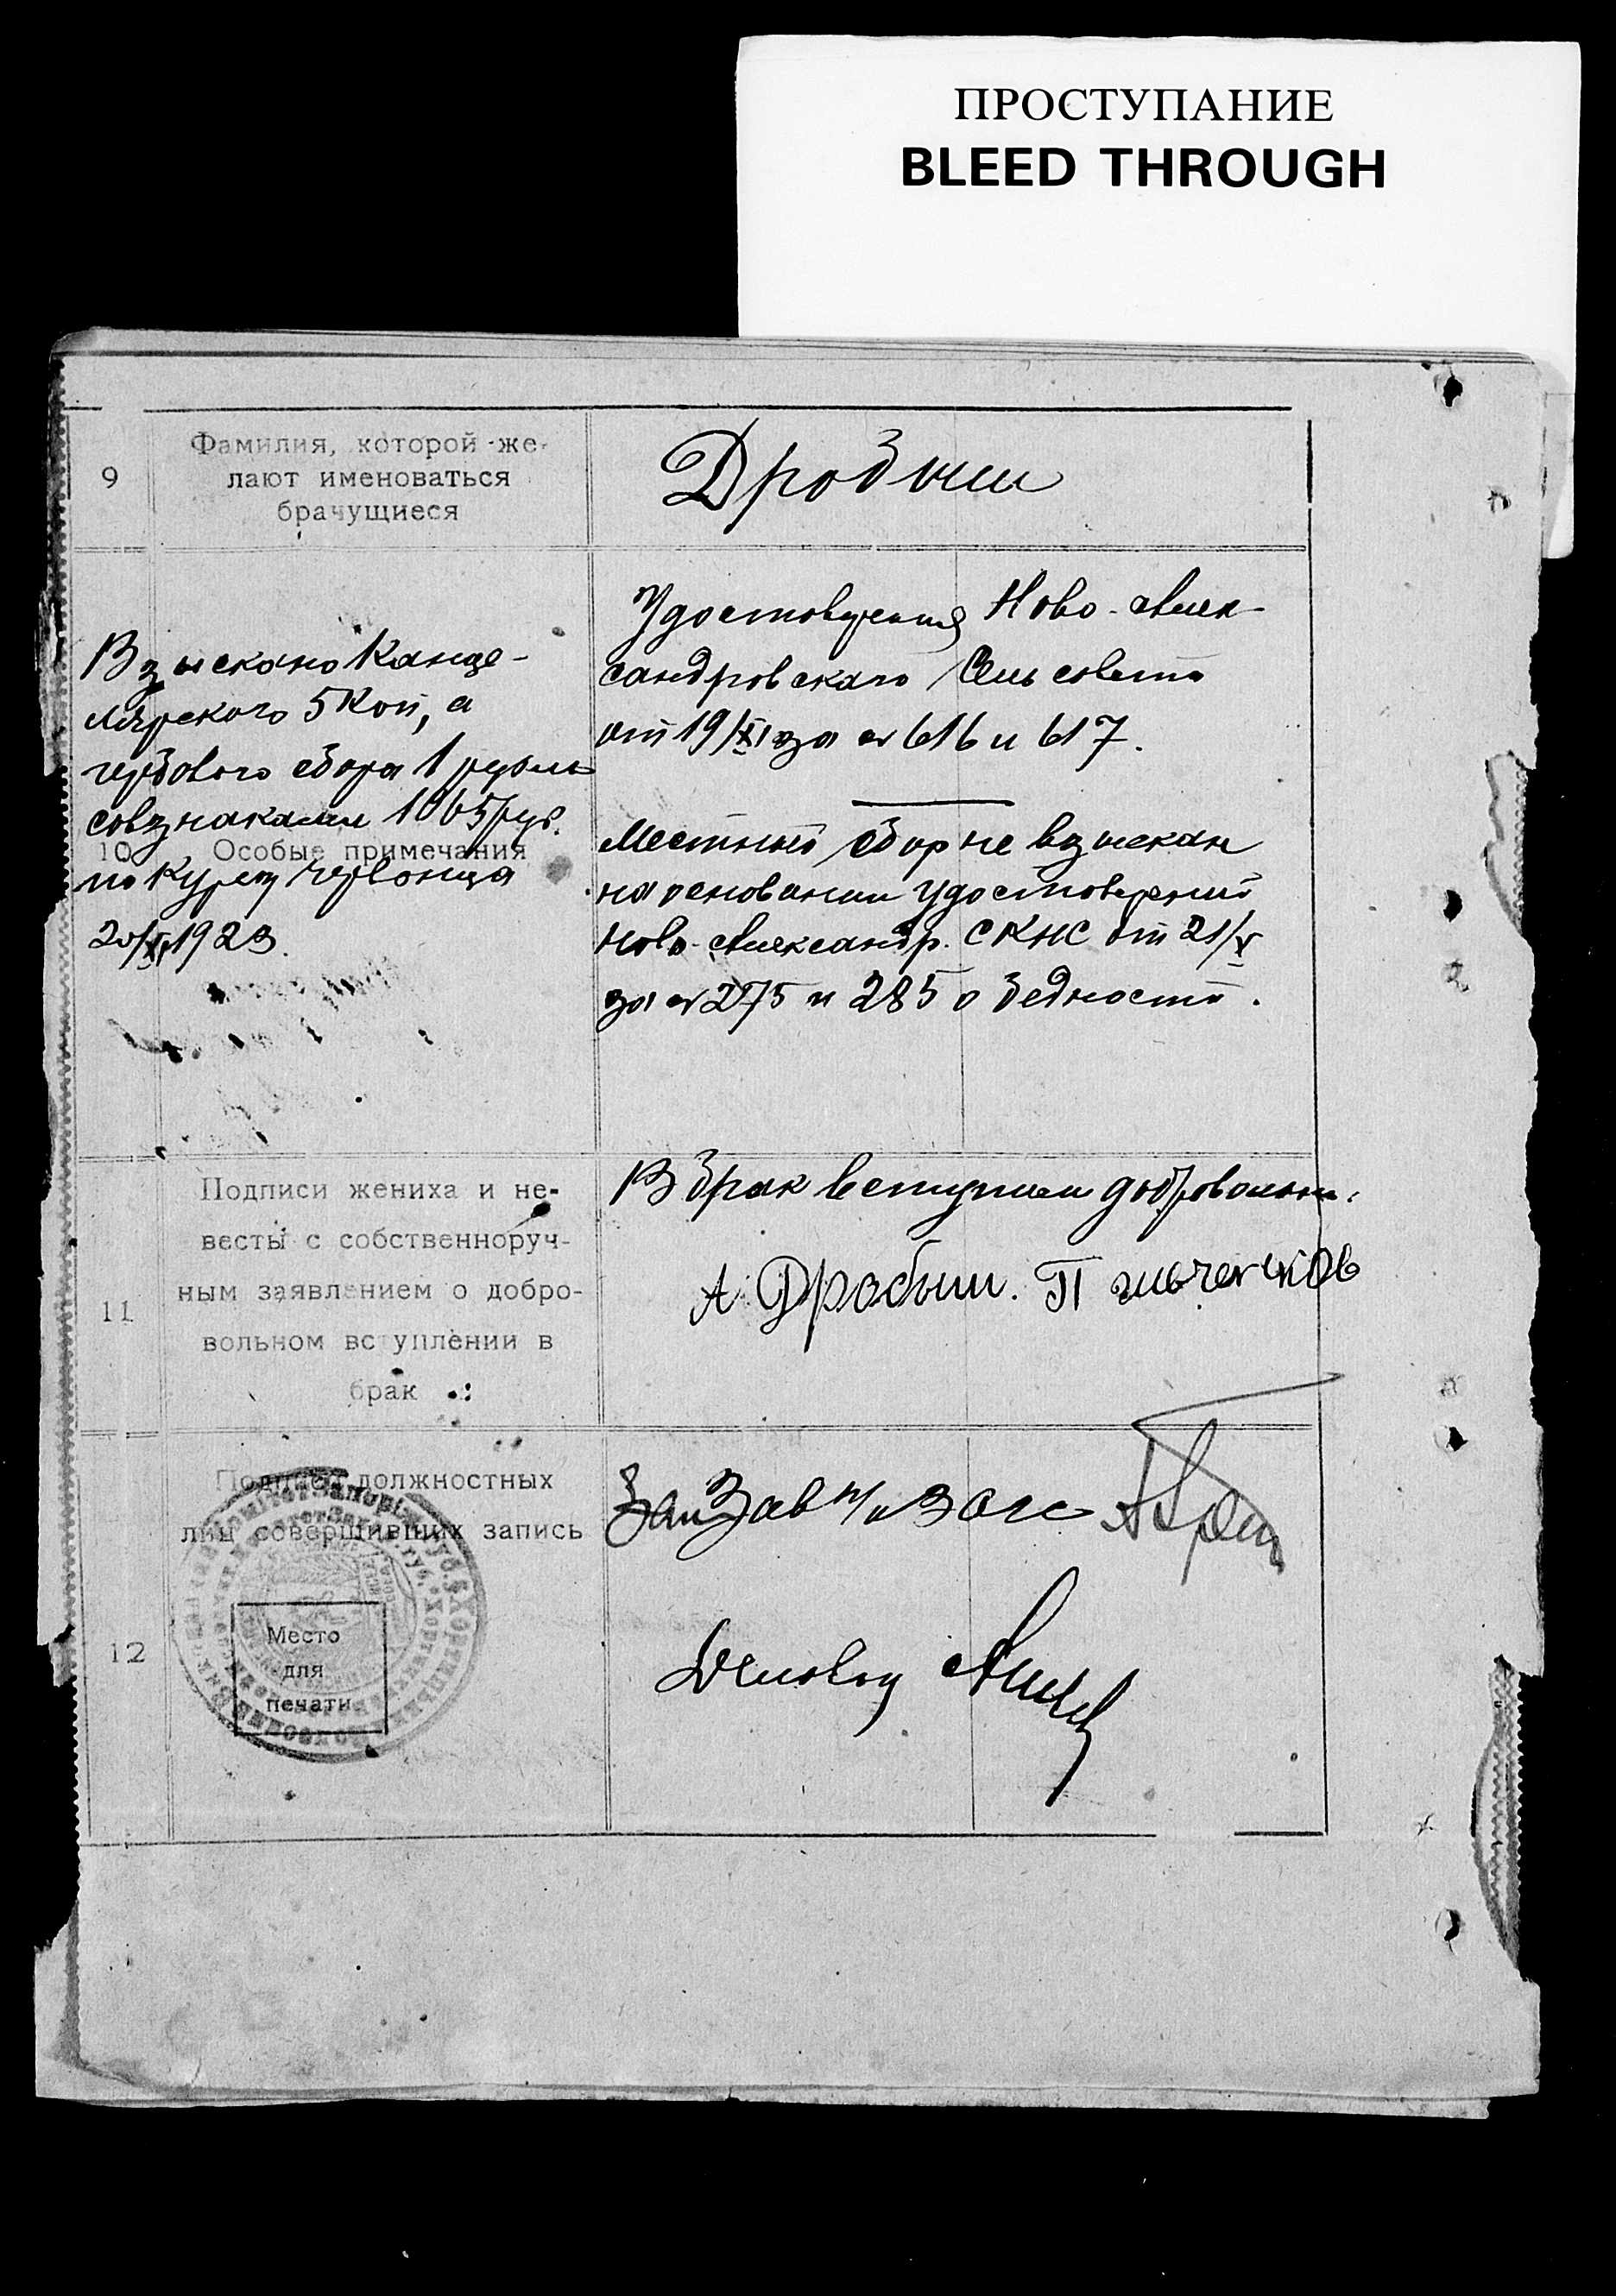 ПРОСТУПАНИЕ
BLEED THROUGH
9
Фамилия, которой же-
лают именоваться
брачущиеся
Дробыш
Взыскано Канце-
лярского 5 Коп, а
гербового сбора 1 рубль
совзнаками 1065 руб.
по курсу червонца
20/XI 1923.
10
Особые примечания
Удостоверения Ново-Алек-
сандровского Сельсовета
от 19/XI за № 616 и 617.
Местный сбор не взыскан
на основании удостоверений
Ново-Александр. СКНС от 21/X
за № 275 и 285 о бедности.
11
Подписи жениха и не-
весты с собственноруч-
ным заявлением о добро-
вольном вступлении в
брак :
В брак вступили добровольно.
А. Дробыш. П
12
Подписи должностных
лиц совершивших запись
Место
для
печати
Зав п/о ЗАГС
Деловод